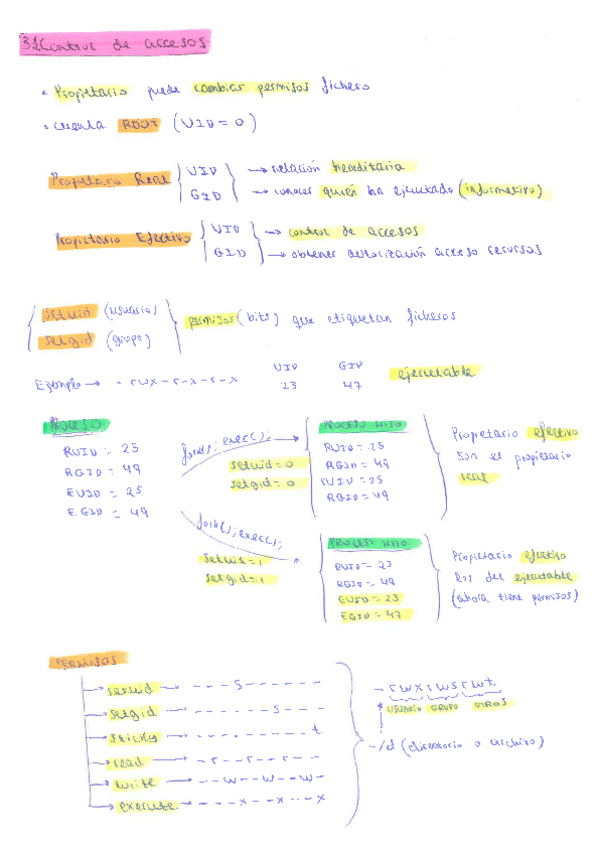 3.1 Control de accesos
• Propietario puede cambiar permisos fichero
• cuenta ROOT (UID = 0)
Propietario Real { UID GID } → relación hereditaria
→ conocer quién ha ejecutado (informativo)
Propietario Efectivo { UID GID } → control de accesos
→ obtener autorización acceso recursos
setuid (usuario)
setgid (grupo)
permisos (bits) que etiquetan ficheros
UID GID
Ejemplo → - rwx - r - x - r - x 23 47 ejecutable
PROCESO
RUID = 25
RGID = 49
EUID = 25
EGID = 49
fork(); exec();
setuid = 0
setgid = 0
PROCESO HIJO
RUID = 25
RGID = 49
EUID = 25
RGID = 49
Propietario efectivo
son el propietario
real
fork(); exec();
setuid = 1
setgid = 1
PROCESO HIJO
RUID = 25
RGID = 49
EUID = 23
EGID = 47
Propietario efectivo
los del ejecutable
(ahora tiene permisos)
PERMISOS
→ setuid → - - - s - - - - - -
→ setgid → - - - - - - s - - -
→ sticky → - - - - - - - - - t
→ read → - r - - r - - r - -
→ write → - - w - - w - - w -
→ execute → - - - x - - x - - x
- rwx rws rwt
USUARIO GRUPO OTROS
- /d (directorio o archivo)